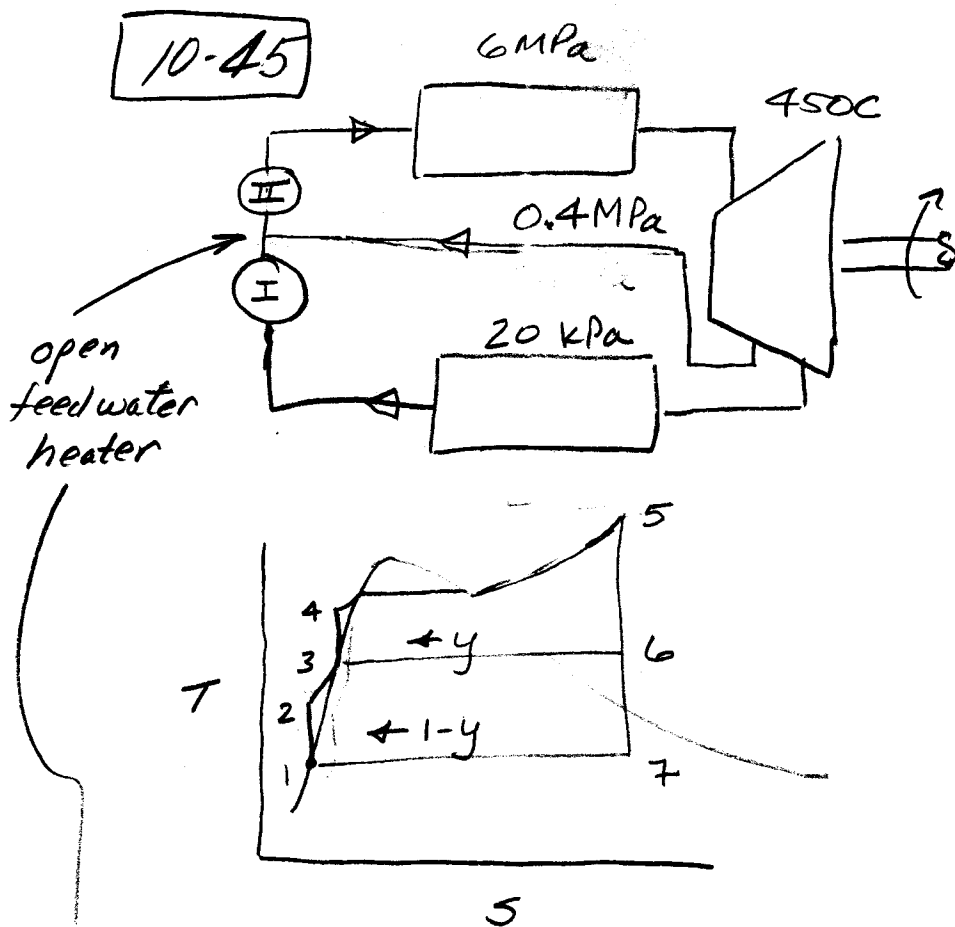 10-45
6 MPa
450C
II
0.4 MPa
I
20 kPa
open
feedwater
heater
5
4
← y
3
6
T
2
← 1-y
1
7
S